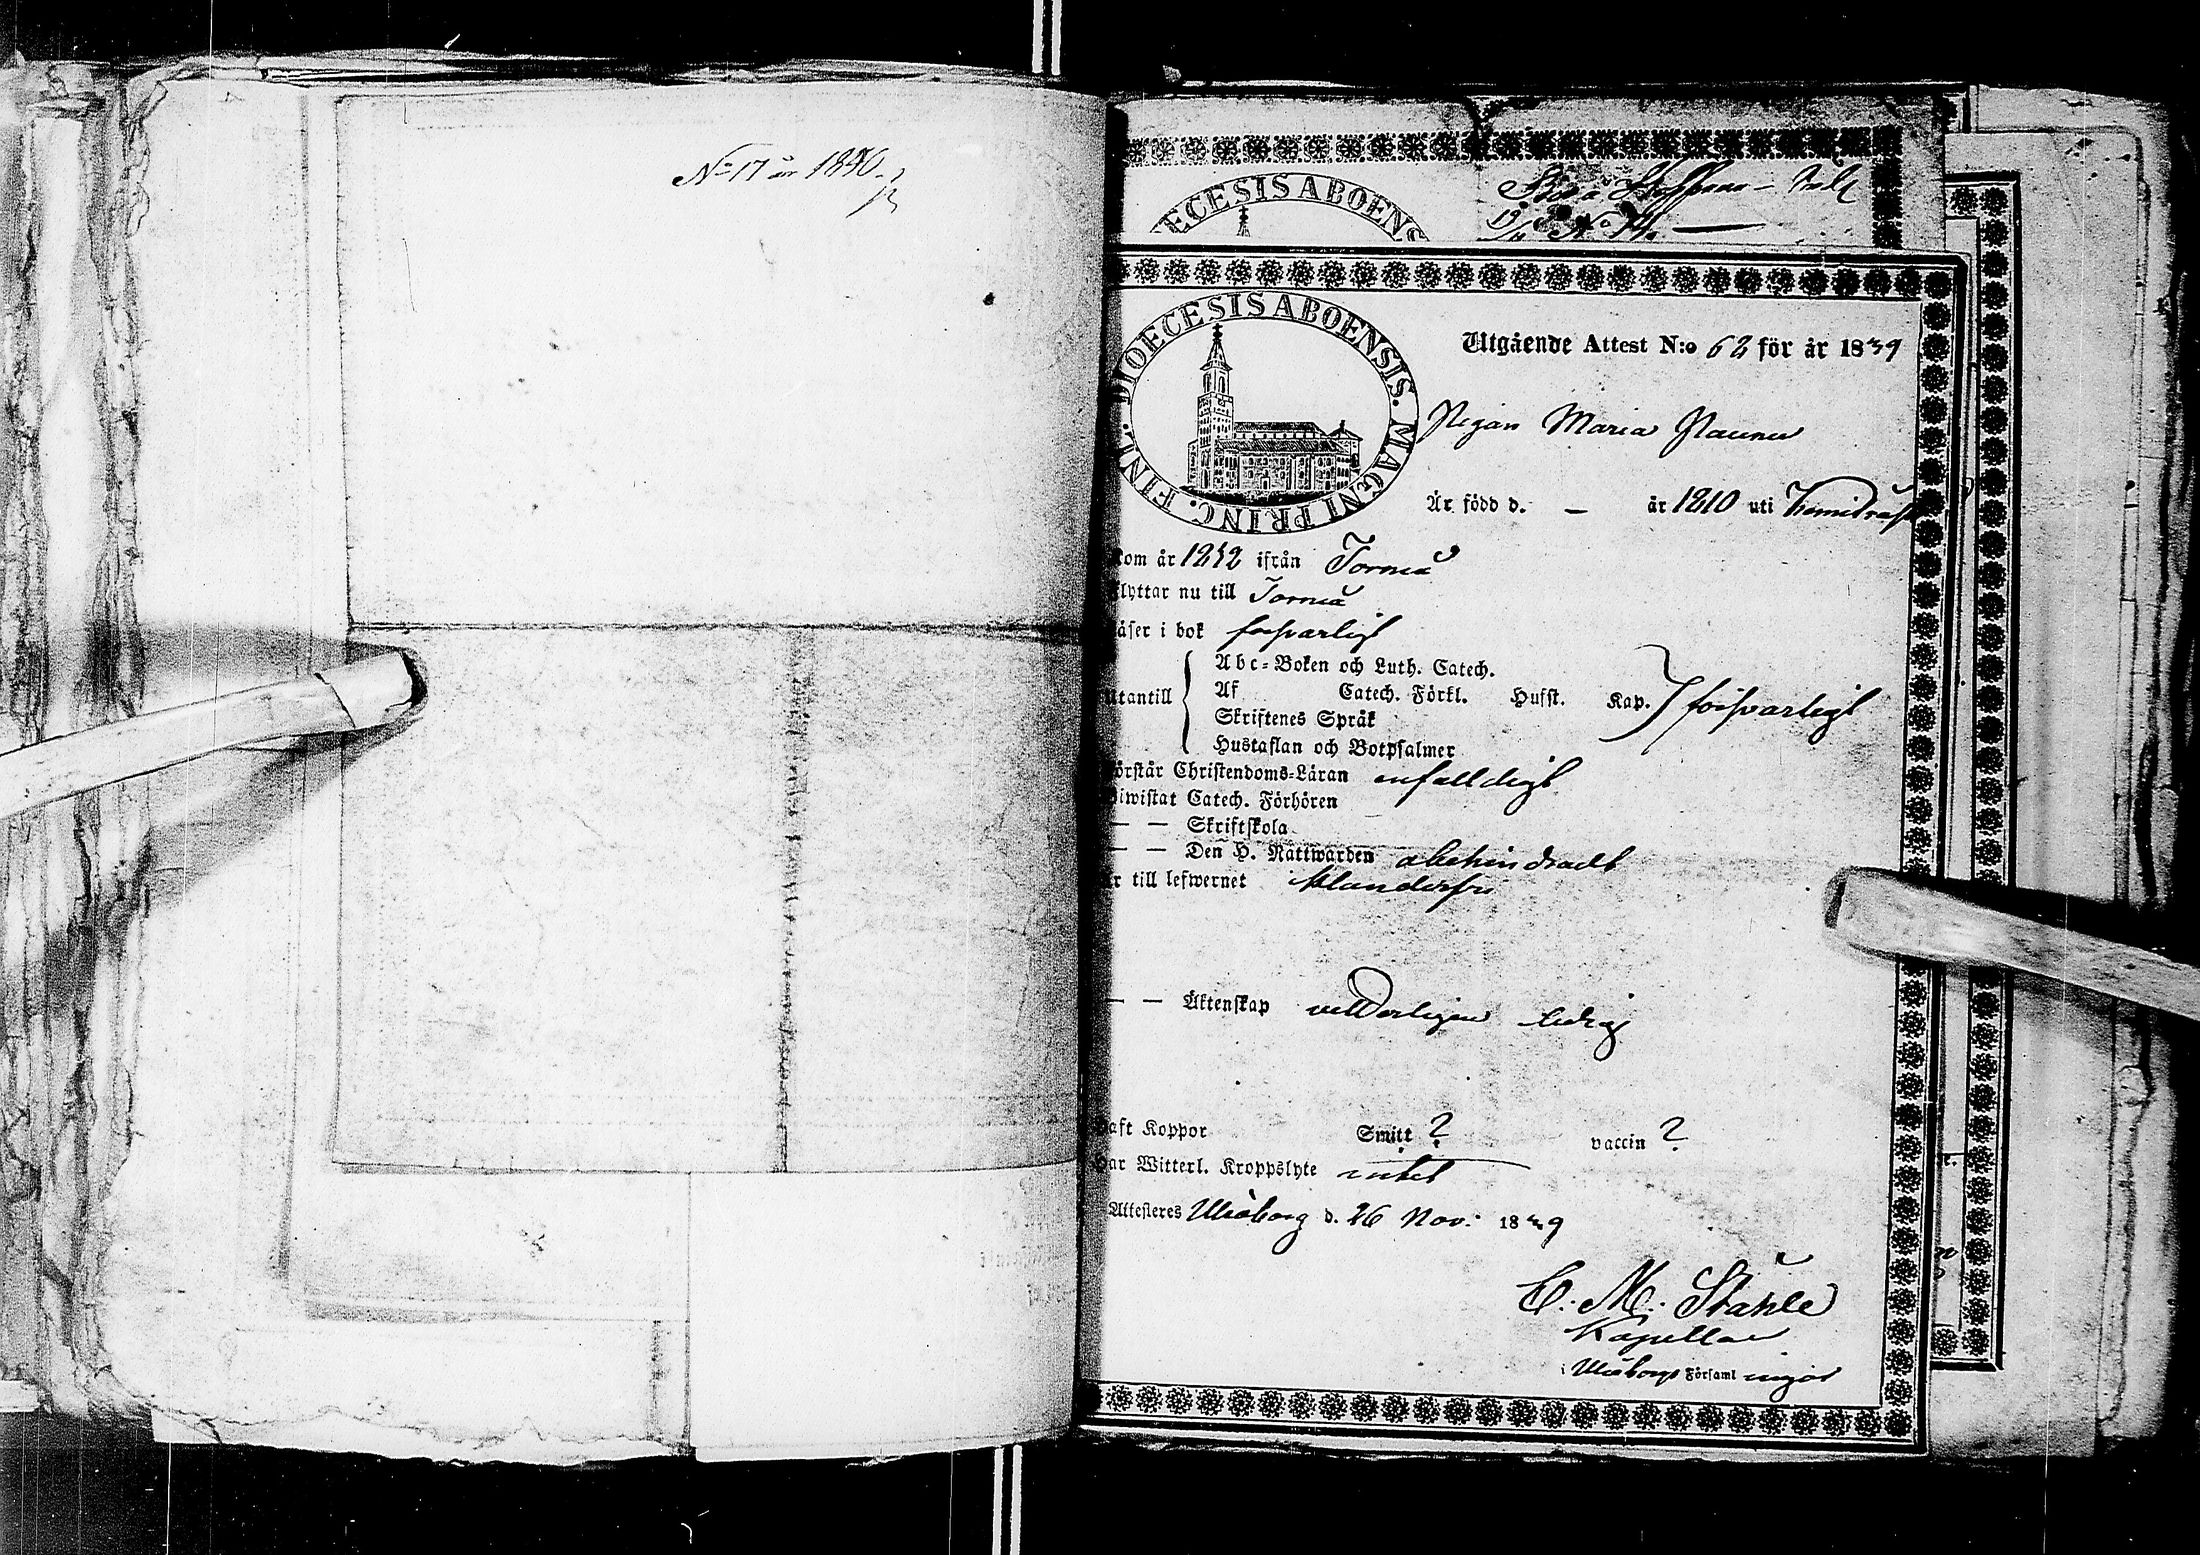 No 17 år 1840
DIOECESIS ABOENS
N:o 74.
DIOECESIS ABOENSIS. MAGNI PRINC. FINL.
Utgående Attest N:o 62 för år 1839
Pigan Maria
Är född d. — år 1810 uti Kemiträsk
kom år 1832 ifrån Torneå
flyttar nu till Torneå
läser i bok försvarligt
Abc-Boken och Luth. Catech.
utantill Af Catech. Förkl. Hufst. Kap. försvarligt
Skriftenes Språk
Hustaflan och Botpsalmer
förstår Christendoms-Läran enfalldigt
biwistat Catech. Förhören
— — Skriftskola
— — Den H. Nattwarden obehindradt
är till lefwernet klanderfri
— — Äktenskap vetterligen ledig
haft Koppor Smitt ? vaccin ?
har Witterl. Kroppslyte intet
Attesteres Uleåborg d. 26 Nov. 1839
C. M. Ståhle
Kapellan
i Uleåborgs Församlingar